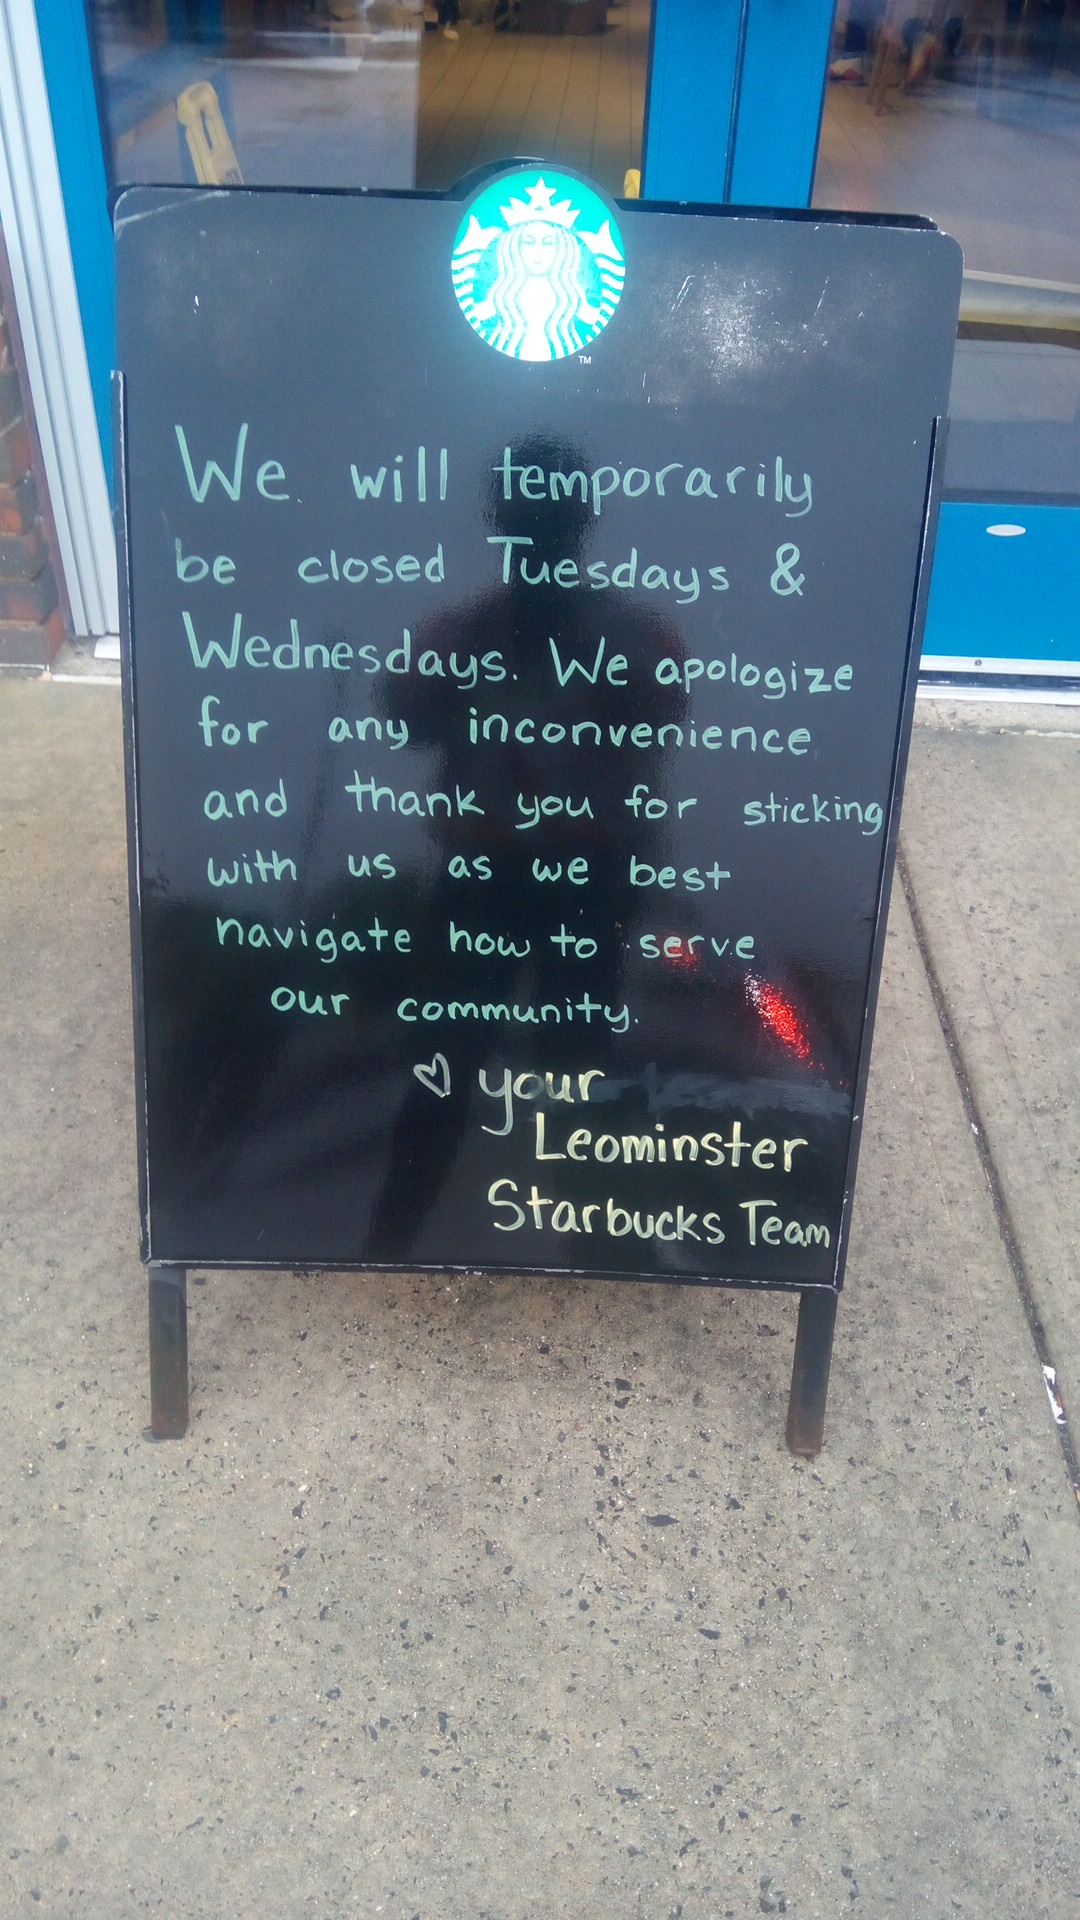 TM
We will temporarily
be closed Tuesdays &
Wednesdays. We apologize
for any inconvenience
and thank you for sticking
with us as we best
navigate how to serve
our community.
♡ your
Leominster
Starbucks Team